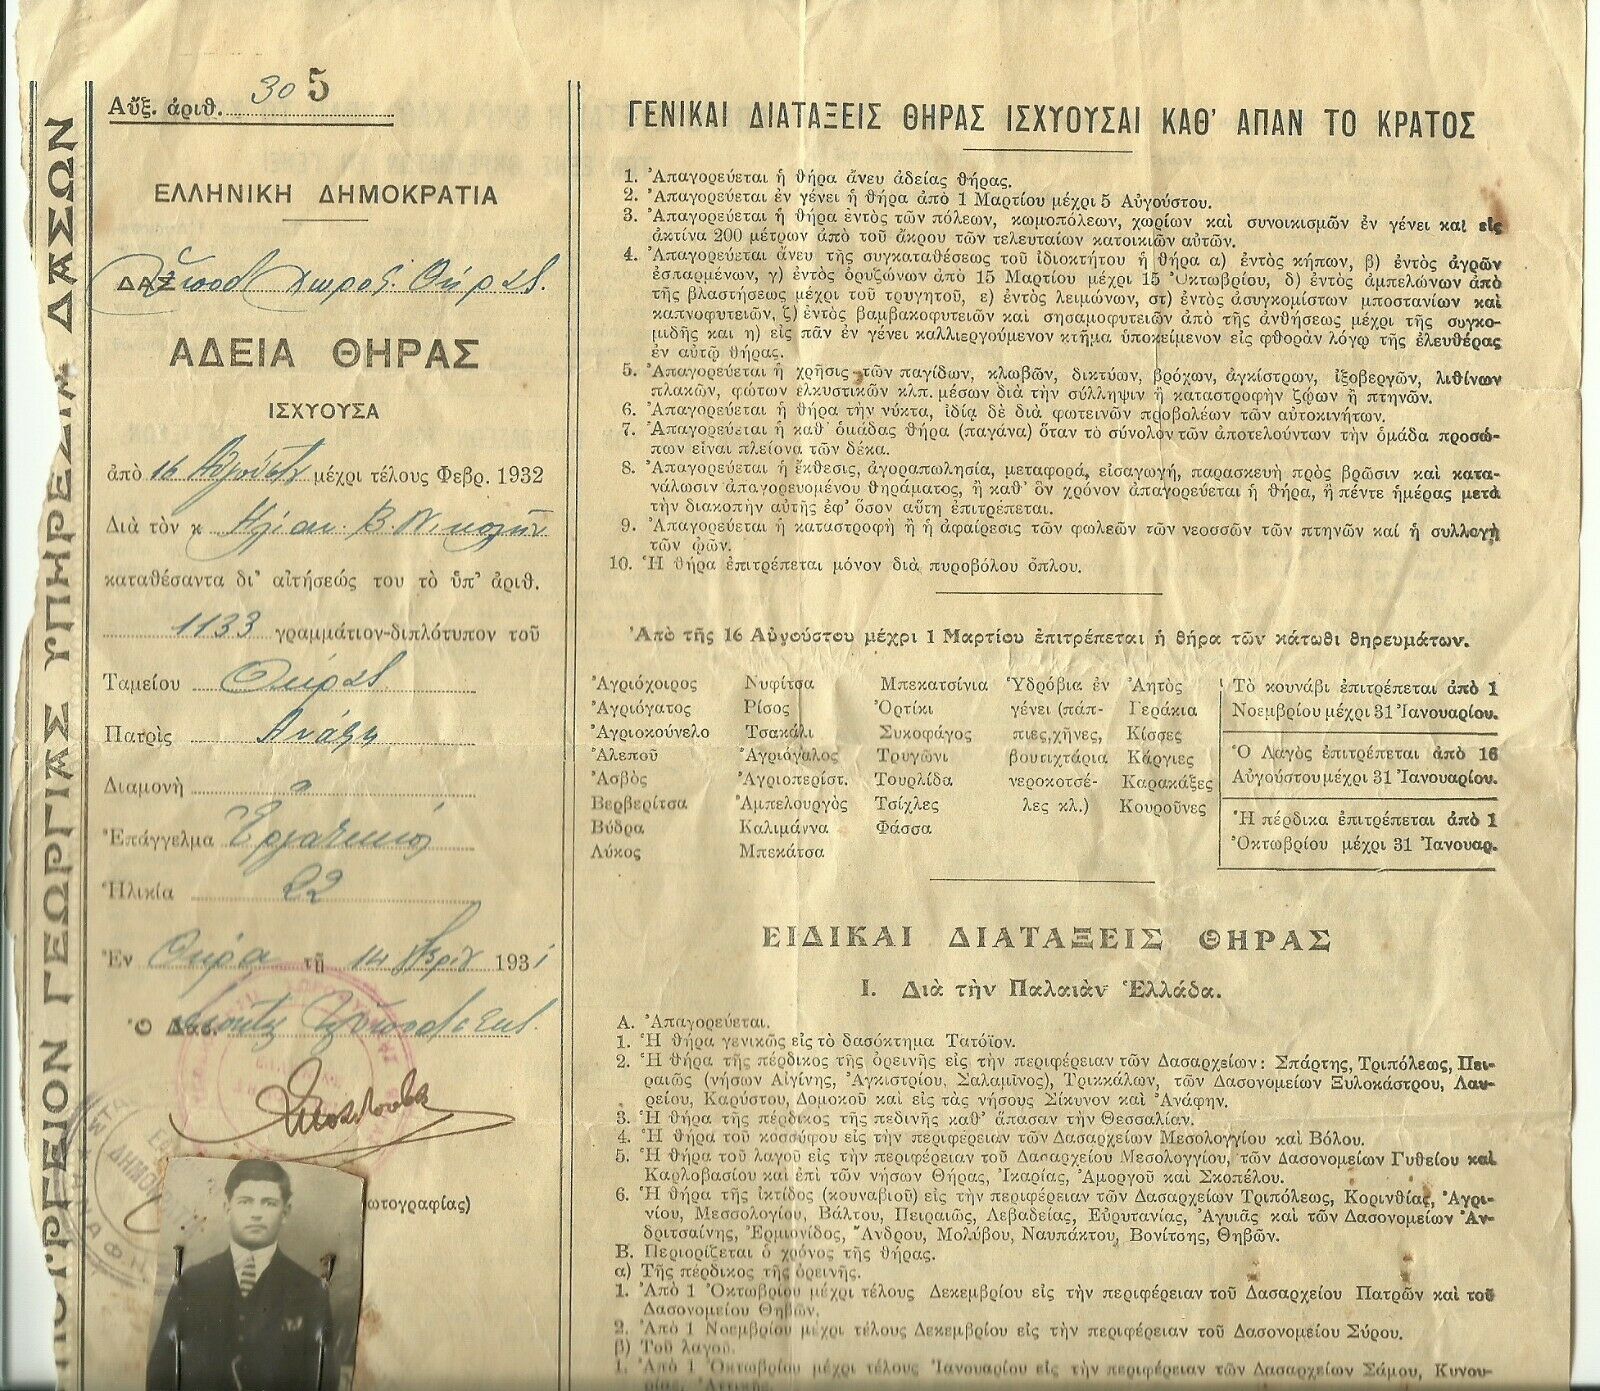 ΥΠΟΥΡΓΕΙΟΝ ΓΕΩΡΓΙΑΣ ΥΠΗΡΕΣΙΑ ΔΑΣΩΝ
Αὔξ. ἀριθ. 30 5
ΕΛΛΗΝΙΚΗ ΔΗΜΟΚΡΑΤΙΑ
ΔΑΣ Θήρας.
ΑΔΕΙΑ ΘΗΡΑΣ
ΙΣΧΥΟΥΣΑ
ἀπὸ 16 Αὐγούστου μέχρι τέλους Φεβρ. 1932
Διὰ τὸν κ Β.
καταθέσαντα δι' αἰτήσεώς του τὸ ὑπ' ἀριθ.
1133 γραμμάτιον-διπλότυπον τοῦ
Ταμείου Θήρας
Πατρὶς Ανάφη
Διαμονὴ
Ἐπάγγελμα
Ἡλικία 22
Ἐν Θήρᾳ τῇ 14 1931
Ὁ Δασ.
φωτογραφίας)
ΓΕΝΙΚΑΙ ΔΙΑΤΑΞΕΙΣ ΘΗΡΑΣ ΙΣΧΥΟΥΣΑΙ ΚΑΘ' ΑΠΑΝ ΤΟ ΚΡΑΤΟΣ
1. Ἀπαγορεύεται ἡ θήρα ἄνευ ἀδείας θήρας.
2. Ἀπαγορεύεται ἐν γένει ἡ θήρα ἀπὸ 1 Μαρτίου μέχρι 5 Αὐγούστου.
3. Ἀπαγορεύεται ἡ θήρα ἐντὸς τῶν πόλεων, κωμοπόλεων, χωρίων καὶ συνοικισμῶν ἐν γένει καὶ εἰς
ἀκτῖνα 200 μέτρων ἀπὸ τοῦ ἄκρου τῶν τελευταίων κατοικιῶν αὐτῶν.
4. Ἀπαγορεύεται ἄνευ τῆς συγκαταθέσεως τοῦ ἰδιοκτήτου ἡ θήρα α) ἐντὸς κήπων, β) ἐντὸς ἀγρῶν
ἐσπαρμένων, γ) ἐντὸς ὀρυζώνων ἀπὸ 15 Μαρτίου μέχρι 15 Ὀκτωβρίου, δ) ἐντὸς ἀμπελώνων ἀπὸ
τῆς βλαστήσεως μέχρι τοῦ τρυγητοῦ, ε) ἐντὸς λειμώνων, στ) ἐντὸς ἀσυγκομίστων μποστανίων καὶ
καπνοφυτειῶν, ζ) ἐντὸς βαμβακοφυτειῶν καὶ σησαμοφυτειῶν ἀπὸ τῆς ἀνθήσεως μέχρι τῆς συγκο-
μιδῆς καὶ η) εἰς πᾶν ἐν γένει καλλιεργούμενον κτῆμα ὑποκείμενον εἰς φθορὰν λόγῳ τῆς ἐλευθέρας
ἐν αὐτῷ θήρας.
5. Ἀπαγορεύεται ἡ χρῆσις τῶν παγίδων, κλωβῶν, δικτύων, βρόχων, ἀγκίστρων, ἰξοβεργῶν, λιθίνων
πλακῶν, φώτων ἑλκυστικῶν κλπ. μέσων διὰ τὴν σύλληψιν ἢ καταστροφὴν ζῴων ἢ πτηνῶν.
6. Ἀπαγορεύεται ἡ θήρα τὴν νύκτα, ἰδίᾳ δὲ διὰ φωτεινῶν προβολέων τῶν αὐτοκινήτων.
7. Ἀπαγορεύεται ἡ καθ' ὁμάδας θήρα (παγάνα) ὅταν τὸ σύνολον τῶν ἀποτελούντων τὴν ὁμάδα προσώ-
πων εἶναι πλείονα τῶν δέκα.
8. Ἀπαγορεύεται ἡ ἔκθεσις, ἀγοραπωλησία, μεταφορά, εἰσαγωγή, παρασκευὴ πρὸς βρῶσιν καὶ κατα-
νάλωσιν ἀπαγορευομένου θηράματος, ἢ καθ' ὃν χρόνον ἀπαγορεύεται ἡ θήρα, ἢ πέντε ἡμέρας μετὰ
τὴν διακοπὴν αὐτῆς ἐφ' ὅσον αὕτη ἐπιτρέπεται.
9. Ἀπαγορεύεται ἡ καταστροφὴ ἢ ἡ ἀφαίρεσις τῶν φωλεῶν τῶν νεοσσῶν τῶν πτηνῶν καί ἡ συλλογὴ
τῶν ᾠῶν.
10. Ἡ θήρα ἐπιτρέπεται μόνον διὰ πυροβόλου ὅπλου.
Ἀπὸ τῆς 16 Αὐγούστου μέχρι 1 Μαρτίου ἐπιτρέπεται ἡ θήρα τῶν κάτωθι θηρευμάτων.
Ἀγριόχοιρος Νυφίτσα Μπεκατσίνια Ὑδρόβια ἐν Ἀητὸς
Ἀγριόγατος Ρίσος Ὀρτίκι γένει (πάπ- Γεράκια
Ἀγριοκούνελο Τσακάλι Συκοφάγος πιες, χῆνες, Κίσσες
Ἀλεποῦ Ἀγριόγαλος Τρυγῶνι βουτιχτάρια Κάργιες
Ἀσβὸς Ἀγριοπερίστ. Τουρλίδα νεροκοτσέ- Καρακάξες
Βερβερίτσα Ἀμπελουργὸς Τσίχλες λες κλ.) Κουροῦνες
Βύδρα Καλιμάννα Φάσσα
Λύκος Μπεκάτσα
Τὸ κουνάβι ἐπιτρέπεται ἀπὸ 1
Νοεμβρίου μέχρι 31 Ἰανουαρίου.
Ὁ Λαγὸς ἐπιτρέπεται ἀπὸ 16
Αὐγούστου μέχρι 31 Ἰανουαρίου.
Ἡ πέρδικα ἐπιτρέπεται ἀπὸ 1
Ὀκτωβρίου μέχρι 31 Ἰανουαρ.
ΕΙΔΙΚΑΙ ΔΙΑΤΑΞΕΙΣ ΘΗΡΑΣ
I. Διὰ τὴν Παλαιὰν Ἑλλάδα.
Α. Ἀπαγορεύεται.
1. Ἡ θήρα γενικῶς εἰς τὸ δασόκτημα Τατόϊον.
2. Ἡ θήρα τῆς πέρδικος τῆς ὀρεινῆς εἰς τὴν περιφέρειαν τῶν Δασαρχείων: Σπάρτης, Τριπόλεως, Πει-
ραιῶς (νήσων Αἰγίνης, Ἀγκιστρίου, Σαλαμῖνος), Τρικκάλων, τῶν Δασονομείων Ξυλοκάστρου, Λαυ-
ρείου, Καρύστου, Δομοκοῦ καὶ εἰς τὰς νήσους Σίκυνον καὶ Ἀνάφην.
3. Ἡ θήρα τῆς πέρδικος τῆς πεδινῆς καθ' ἅπασαν τὴν Θεσσαλίαν.
4. Ἡ θήρα τοῦ κοσσύφου εἰς τὴν περιφέρειαν τῶν Δασαρχείων Μεσολογγίου καὶ Βόλου.
5. Ἡ θήρα τοῦ λαγοῦ εἰς τὴν περιφέρειαν τοῦ Δασαρχείου Μεσολογγίου, τῶν Δασονομείων Γυθείου καὶ
Καρλοβασίου καὶ ἐπὶ τῶν νήσων Θήρας, Ἰκαρίας, Ἀμοργοῦ καὶ Σκοπέλου.
6. Ἡ θήρα τῆς ἰκτίδος (κουναβιοῦ) εἰς τὴν περιφέρειαν τῶν Δασαρχείων Τριπόλεως, Κορινθίας, Ἀγρι-
νίου, Μεσσολογίου, Βάλτου, Πειραιῶς, Λεβαδείας, Εὐρυτανίας, Ἀγυιᾶς καὶ τῶν Δασονομείων Ἀν-
δριτσαίνης, Ἑρμιονίδος, Ἄνδρου, Μολύβου, Ναυπάκτου, Βονίτσης, Θηβῶν.
Β. Περιορίζεται ὁ χρόνος τῆς θήρας.
α) Τῆς πέρδικος τῆς ὀρεινῆς.
1. Ἀπὸ 1 Ὀκτωβρίου μέχρι τέλους Δεκεμβρίου εἰς τὴν περιφέρειαν τοῦ Δασαρχείου Πατρῶν καὶ τοῦ
Δασονομείου Θηβῶν.
2. Ἀπὸ 1 Νοεμβρίου μέχρι τέλους Δεκεμβρίου εἰς τὴν περιφέρειαν τοῦ Δασονομείου Σύρου.
β) Τοῦ λαγοῦ.
1. Ἀπὸ 1 Ὀκτωβρίου μέχρι τέλους Ἰανουαρίου εἰς τὴν περιφέρειαν τῶν Δασαρχείων Σάμου, Κυνου-
ρίας, Ἀττικῆς.